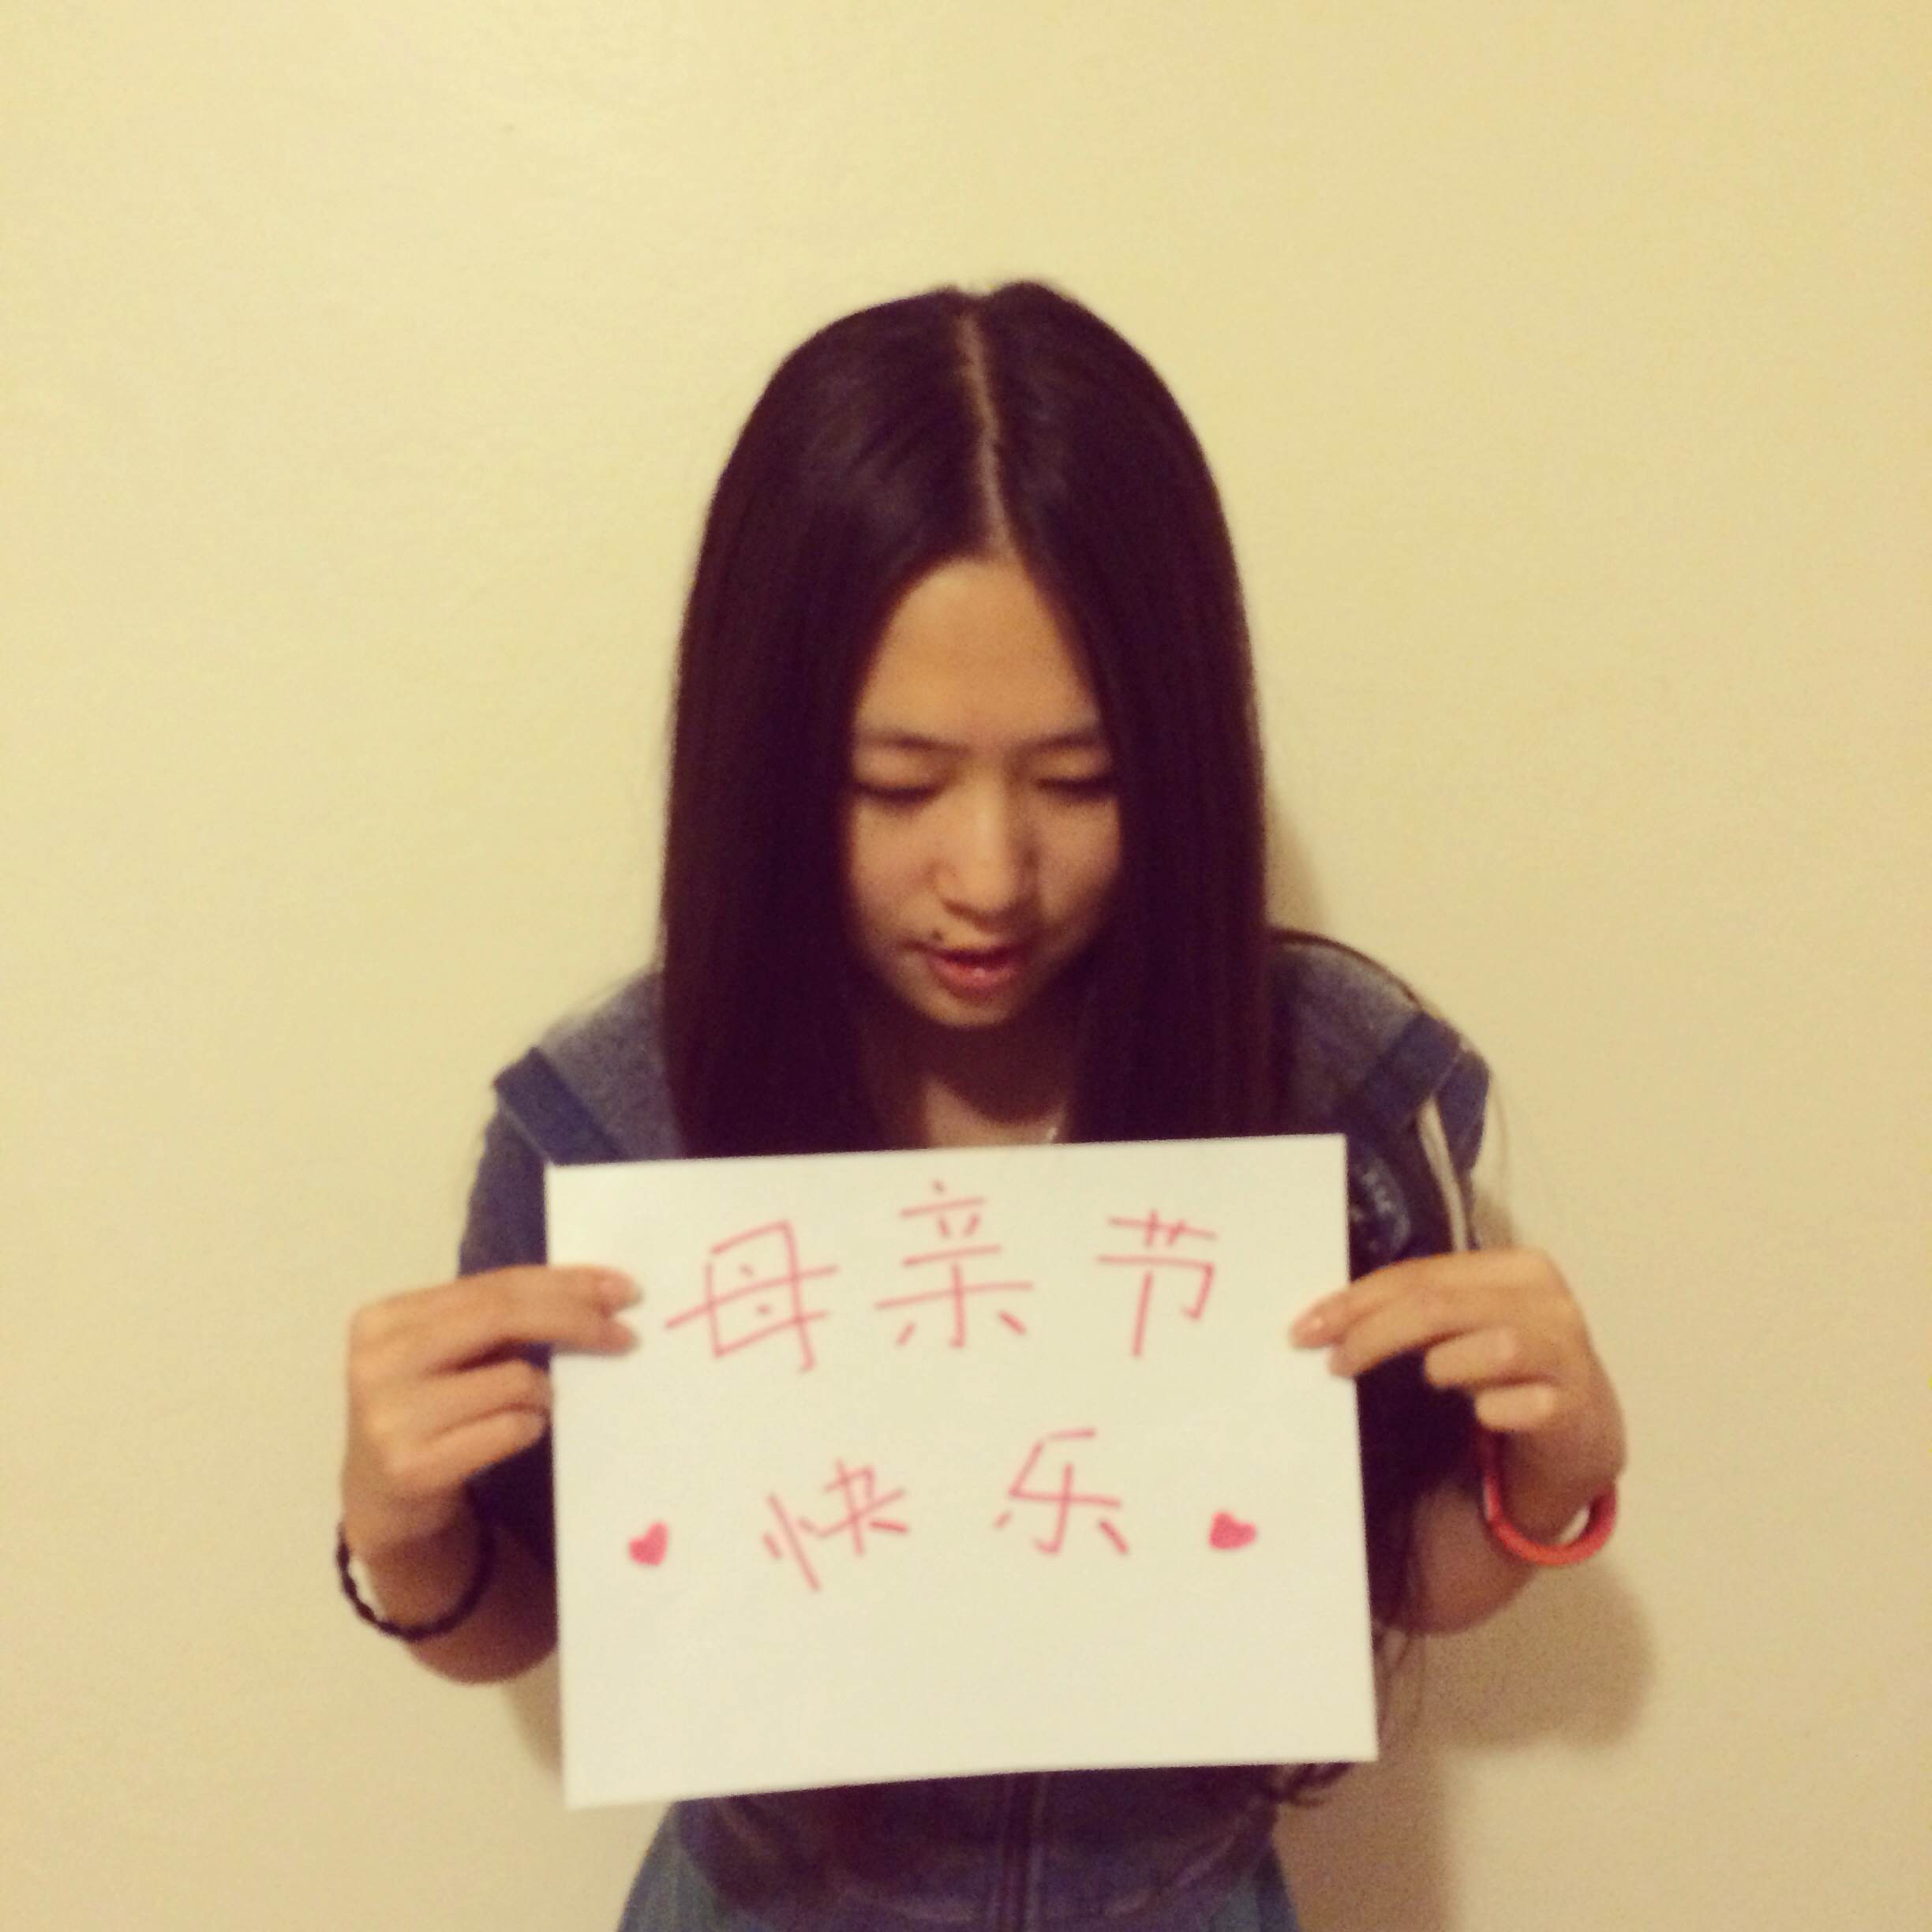 母亲节
快乐